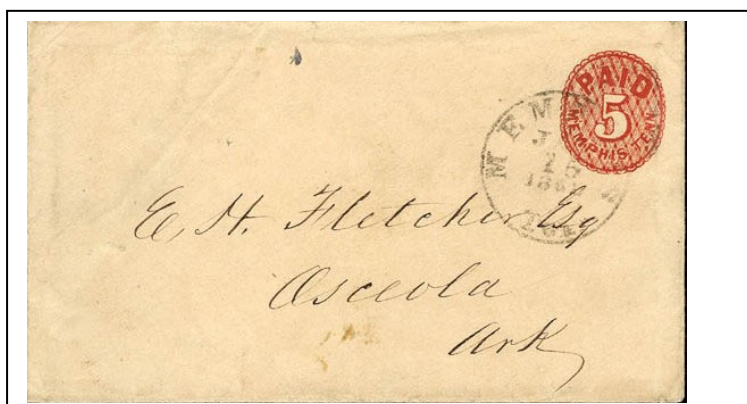 PAID
5
MEMPHIS, TENN.
MEM
15
186
E. H. Fletcher Esq
Osceola
Ark